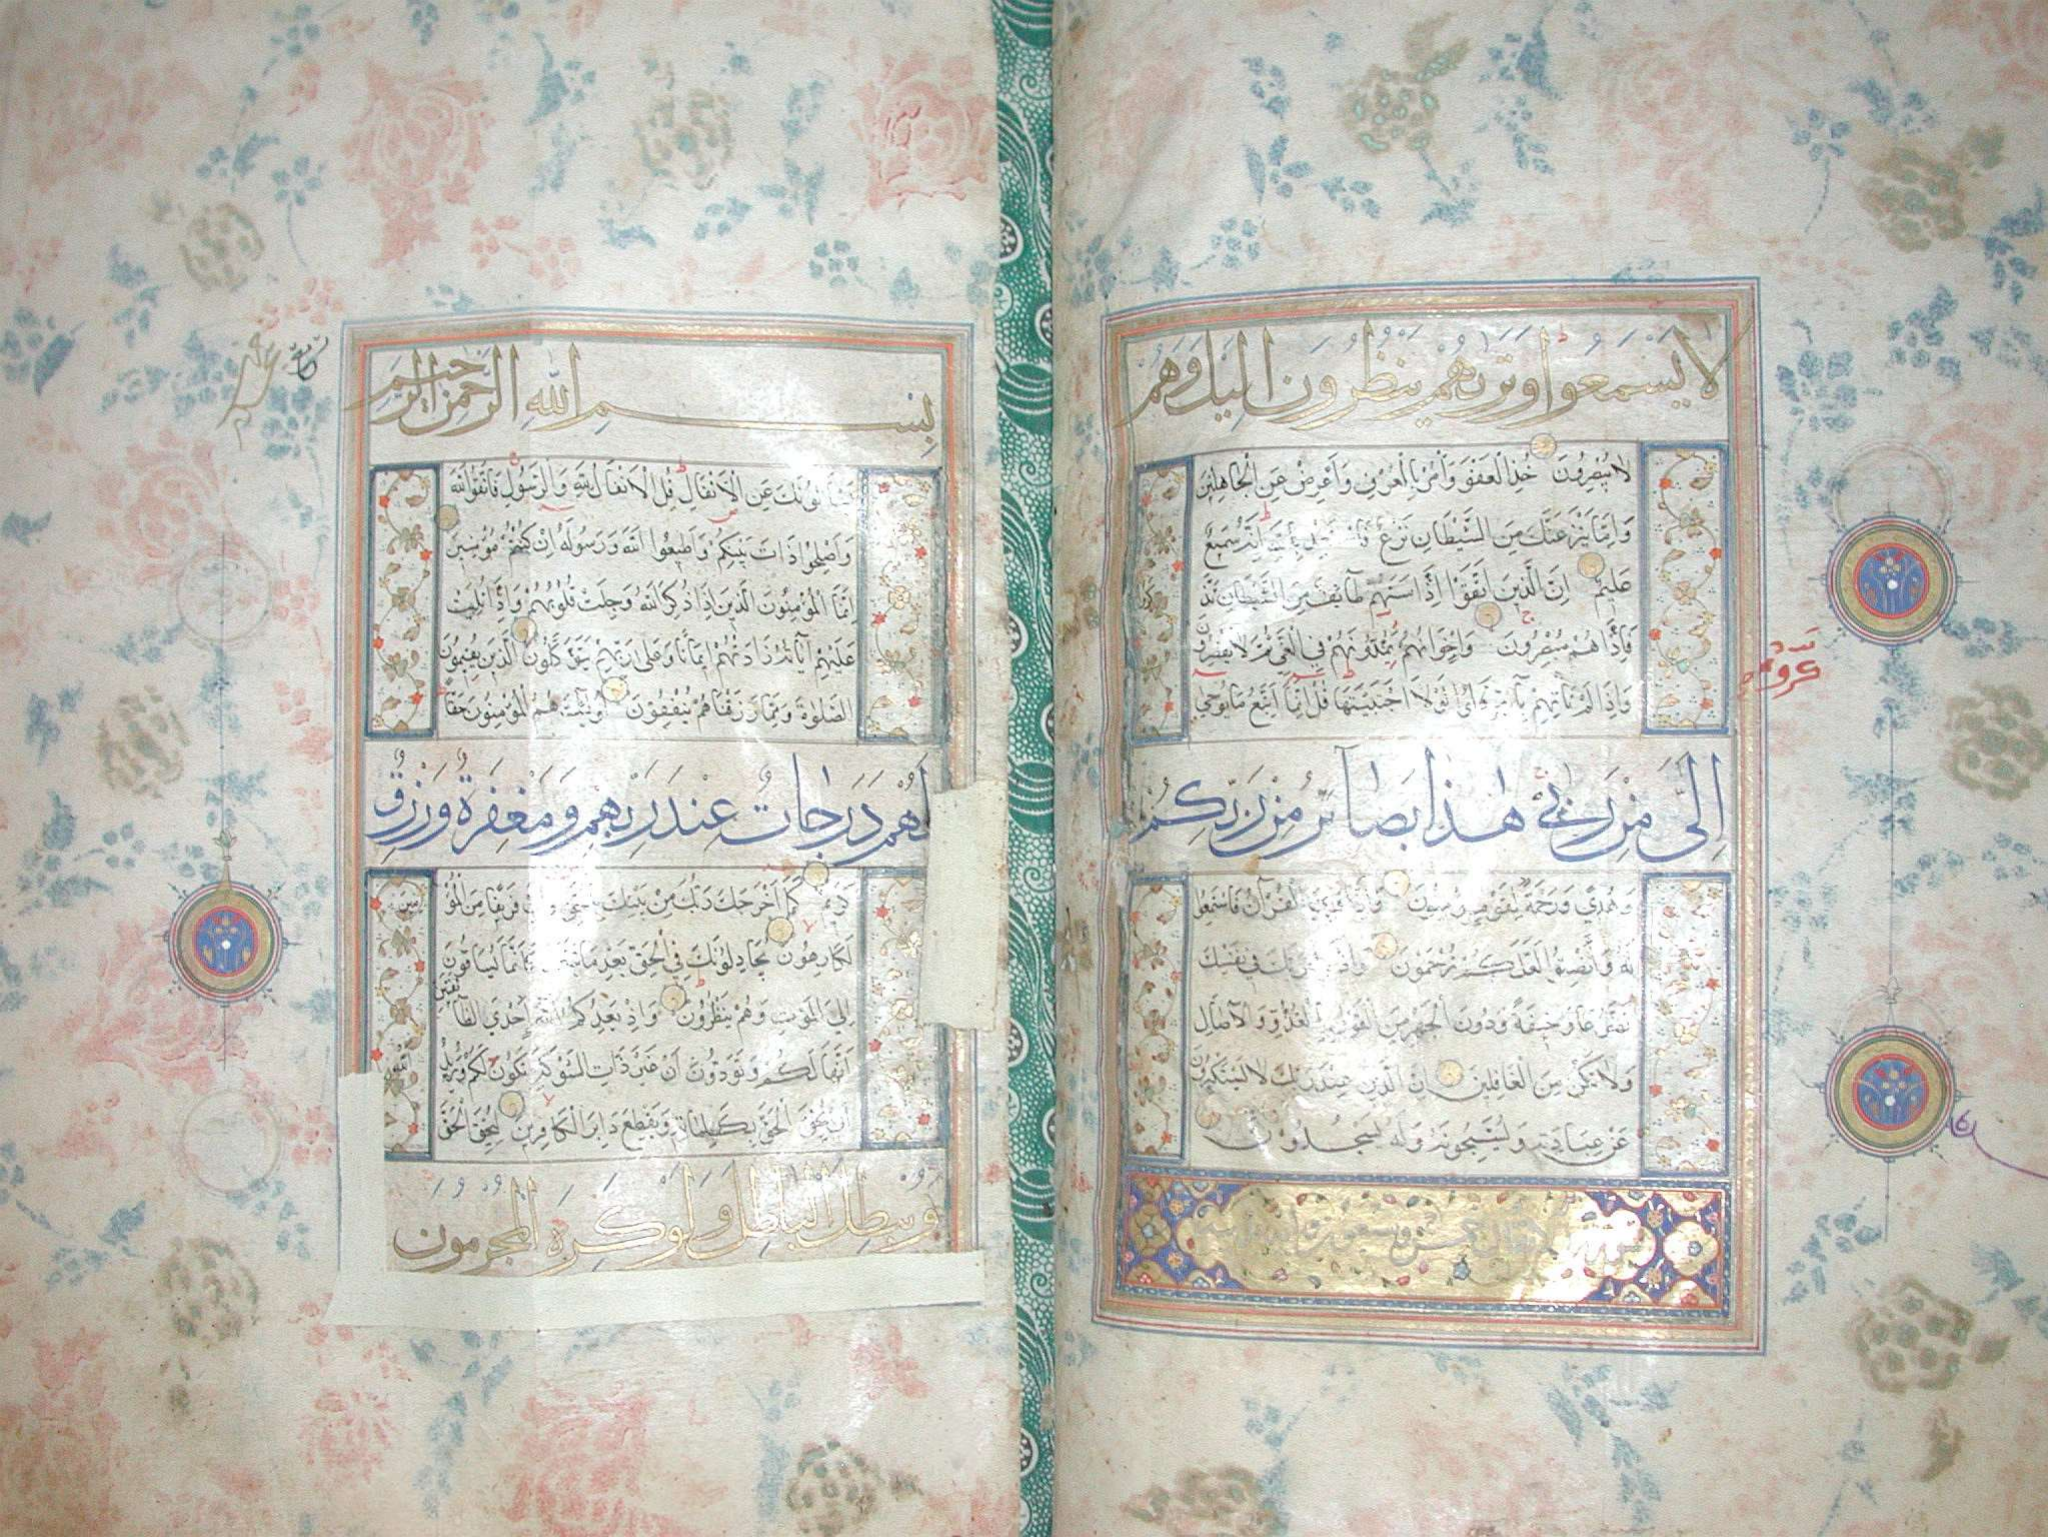 لا يسمعوا وتريهم ينظرون اليك وهم
لا يبصرون خذ العفو وأمر بالعرف وأعرض عن الجاهلين
وإما ينزغنك من الشيطان نزغ فاستعذ بالله إنه سميع
عليم إن الذين اتقوا إذا مسهم طائف من الشيطان تذكروا
فإذا هم مبصرون وإخوانهم يمدونهم في الغي ثم لا يقصرون
وإذا لم تأتهم بآية قالوا لولا اجتبيتها قل إنما أتبع ما يوحى
إلي من ربي هذا بصائر من ربكم
وهدى ورحمة لقوم يؤمنون وإذا قرئ القرآن فاستمعوا
له وأنصتوا لعلكم ترحمون واذكر ربك في نفسك
تضرعا وخيفة ودون الجهر من القول بالغدو والآصال
ولا تكن من الغافلين إن الذين عند ربك لا يستكبرون
عن عبادته ويسبحونه وله يسجدون
بسم الله الرحمن الرحيم
يسألونك عن الأنفال قل الأنفال لله والرسول فاتقوا الله
وأصلحوا ذات بينكم وأطيعوا الله ورسوله إن كنتم مؤمنين
إنما المؤمنون الذين إذا ذكر الله وجلت قلوبهم وإذا تليت
عليهم آياته زادتهم إيمانا وعلى ربهم يتوكلون الذين يقيمون
الصلوة ومما رزقناهم ينفقون أولئك هم المؤمنون حقا
لهم درجات عند ربهم ومغفرة ورزق
كريم كما أخرجك ربك من بيتك بالحق وإن فريقا من المؤمنين
لكارهون يجادلونك في الحق بعد ما تبين كأنما يساقون
إلى الموت وهم ينظرون وإذ يعدكم الله إحدى الطائفتين
أنها لكم وتودون أن غير ذات الشوكة تكون لكم ويريد الله
أن يحق الحق بكلماته ويقطع دابر الكافرين ليحق الحق
ويبطل الباطل ولو كره المجرمون